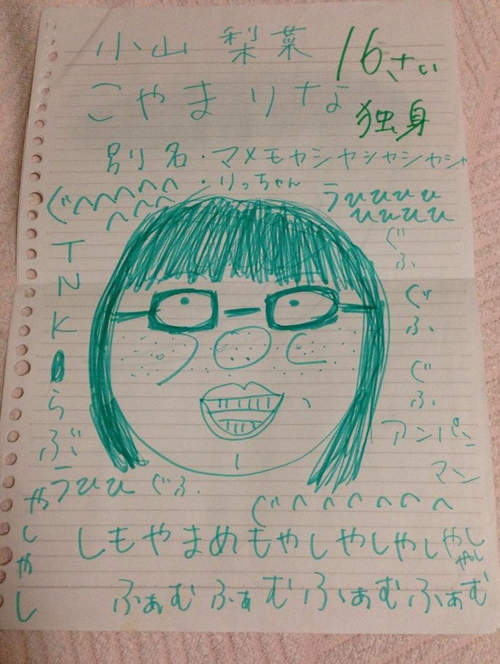 小山 梨菜
16さい
こやま りな
独身
別名・マメモヤシヤシャシャシャシャ
・りっちゃん
ぐへへへへへ
へへへへ
うひひひひ
ひひひひ
ぐふ
ぐふ
ぐふ
TNK
らぶ
アンパンマン
うひひ ぐふ.
ぐへへへへへへ
やしゃし
しもやまめもやしやしやしやし
やし
ふぁむふぁむふぁむふぁむ